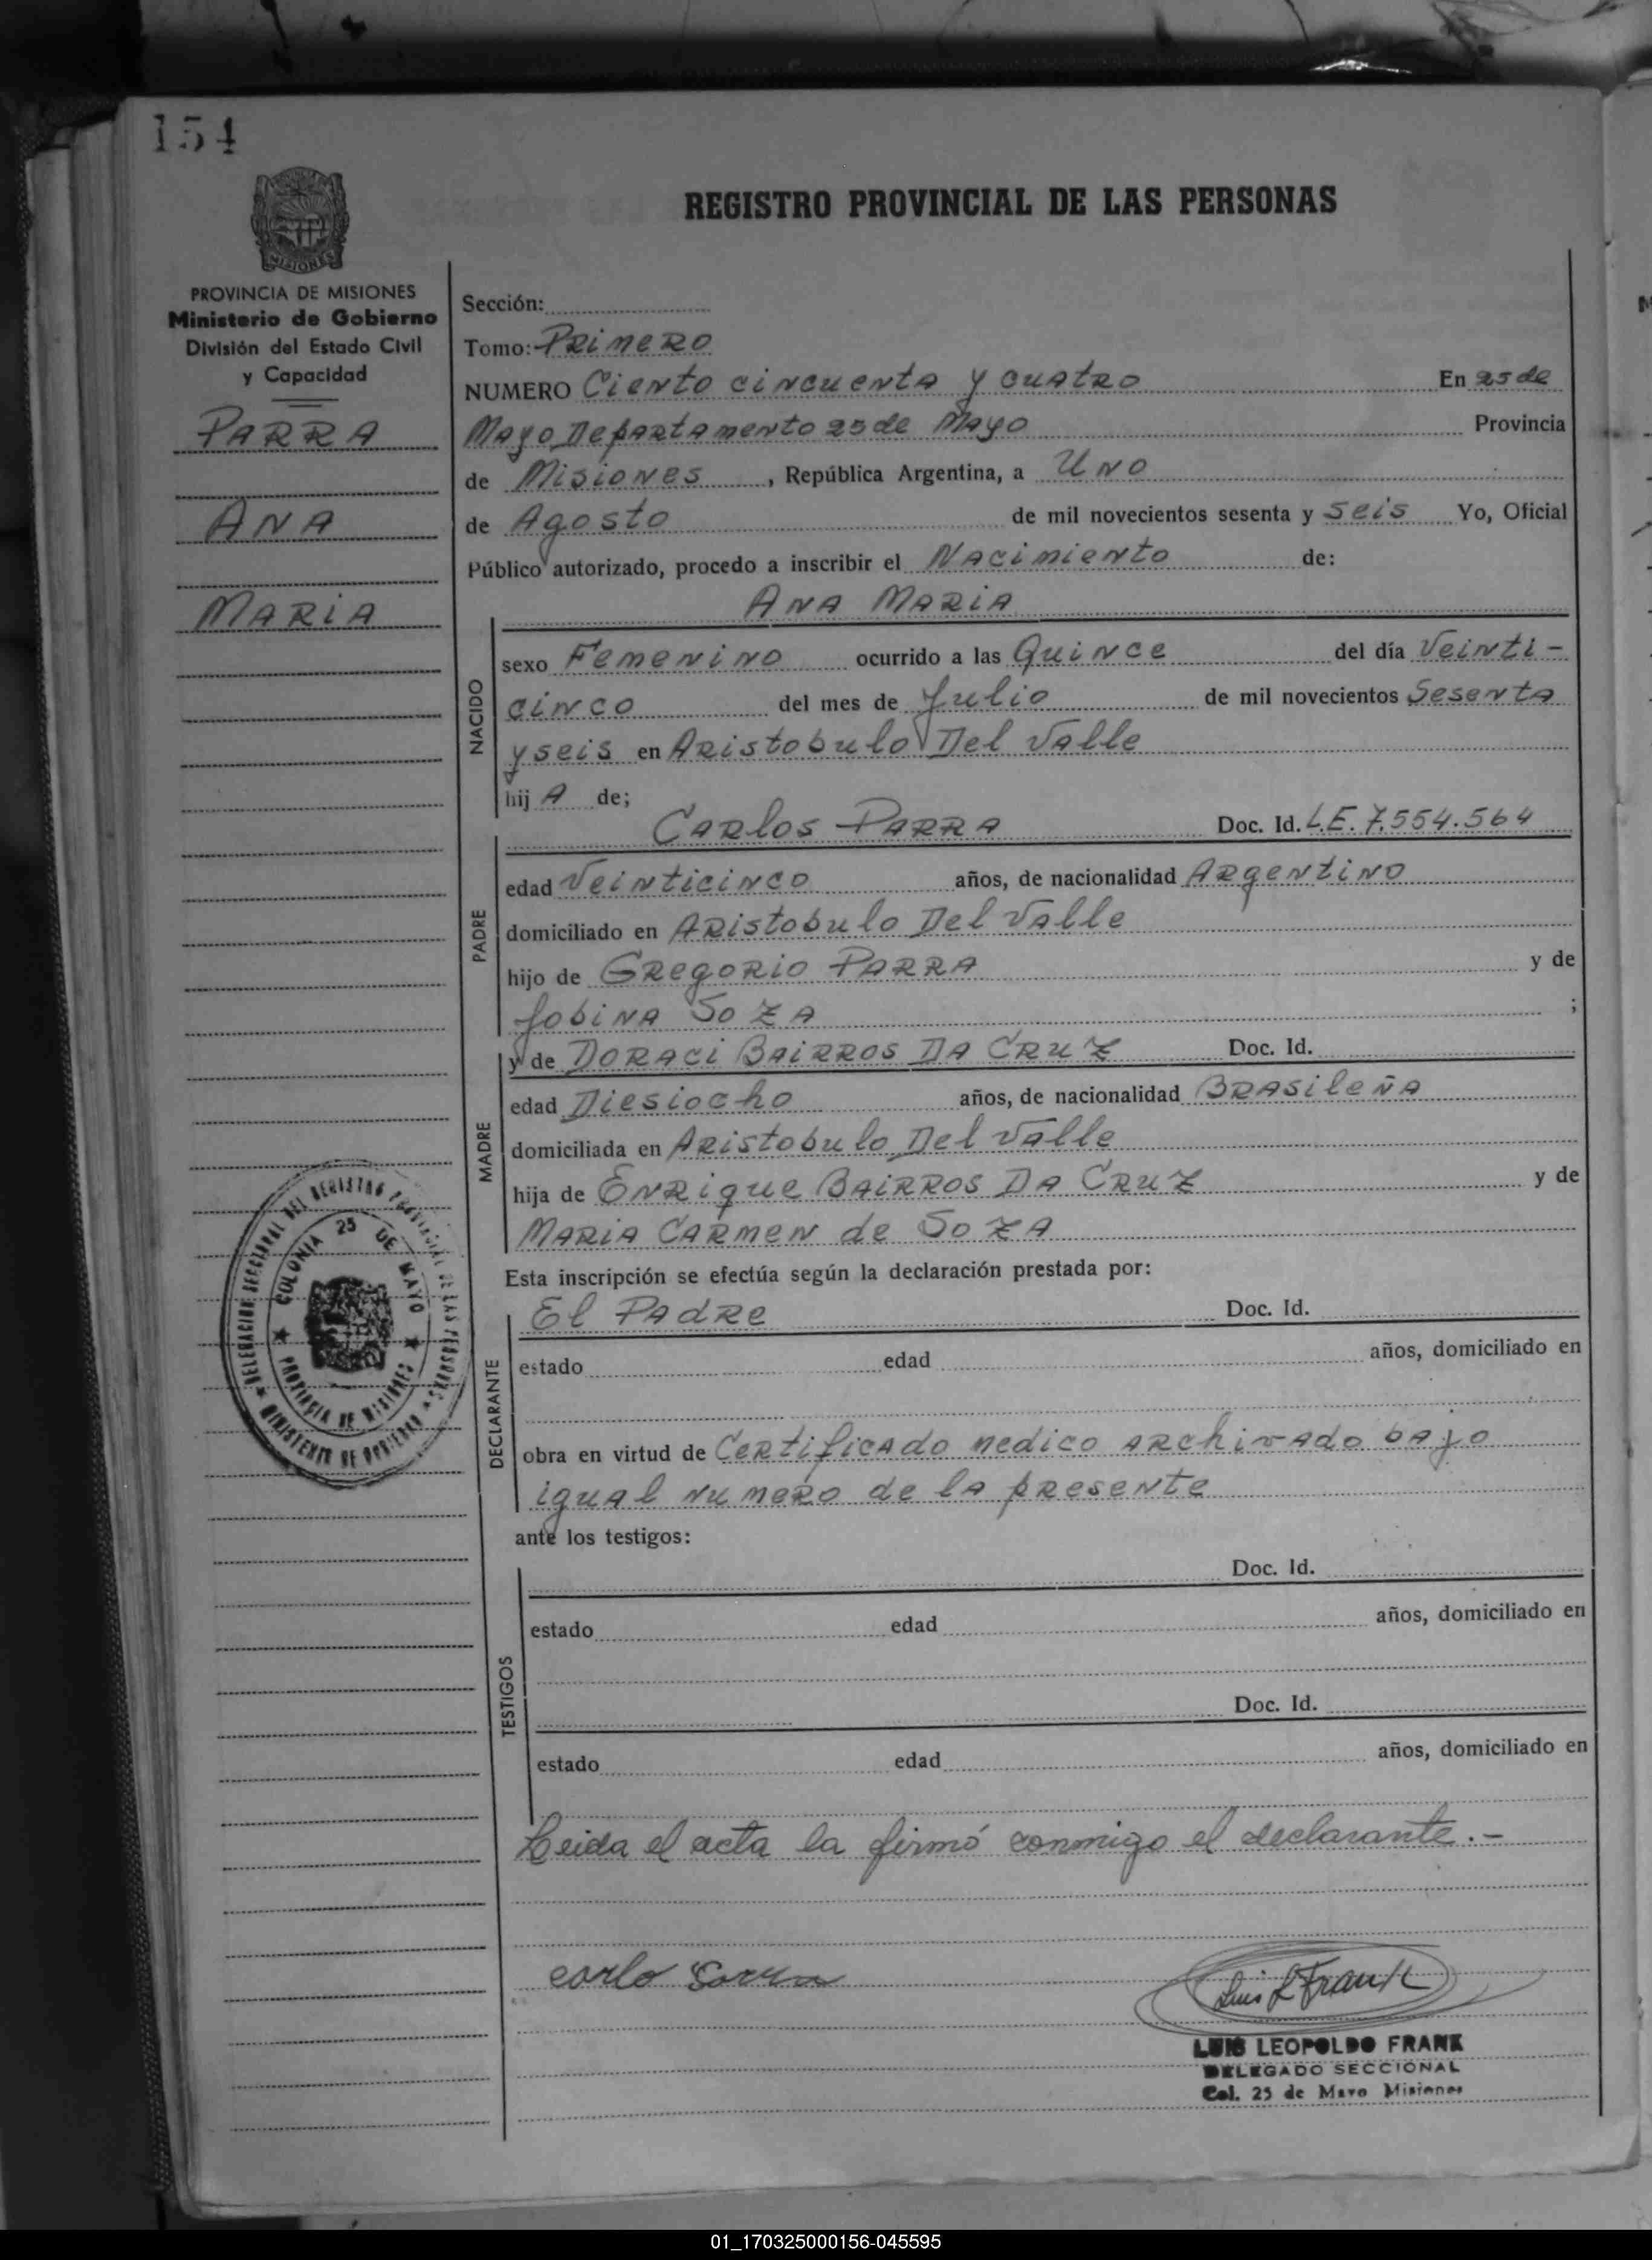 154
REGISTRO PROVINCIAL DE LAS PERSONAS
MISIONES
PROVINCIA DE MISIONES
Ministerio de Gobierno
División del Estado Civil
y Capacidad
PARRA
ANA
MARIA
Sección:
Tomo: PRIMERO
NUMERO Ciento cincuenta y cuatro En 25 de
Mayo Departamento 25 de Mayo Provincia
de Misiones, República Argentina, a Uno
de Agosto de mil novecientos sesenta y seis Yo, Oficial
Público autorizado, procedo a inscribir el Nacimiento de:
ANA MARIA
NACIDO
sexo Femenino ocurrido a las Quince del día Veinti-
cinco del mes de Julio de mil novecientos Sesenta
y seis en Aristobulo Del Valle
hij A de;
PADRE
Carlos PARRA Doc. Id. L.E. 7.554.564
edad Veinticinco años, de nacionalidad Argentino
domiciliado en Aristobulo Del Valle
hijo de Gregorio PARRA y de
Jobina SOZA ;
MADRE
y de DORACI BAIRROS DA CRUZ Doc. Id.
edad Diesiocho años, de nacionalidad BRASileÑA
domiciliada en Aristobulo Del Valle
hija de ENRique BAIRROS DA CRUZ y de
MARIA CARMEN de SOZA
Esta inscripción se efectúa según la declaración prestada por:
DECLARANTE
El PAdRe Doc. Id.
estado edad años, domiciliado en
obra en virtud de Certificado medico archivado bajo
igual numero de la presente
ante los testigos:
TESTIGOS
Doc. Id.
estado edad años, domiciliado en
Doc. Id.
estado edad años, domiciliado en
Leida el acta la firmó conmigo el declarante.-
DELEGACION SECCIONAL DEL REGISTRO PROVINCIAL DE LAS PERSONAS
MINISTERIO DE GOBIERNO
COLONIA 25 DE MAYO
PROVINCIA DE MISIONES
carlo
Luis L Frank
LUIS LEOPOLDO FRANK
DELEGADO SECCIONAL
Col. 25 de Mayo Misiones
01_170325000156-045595